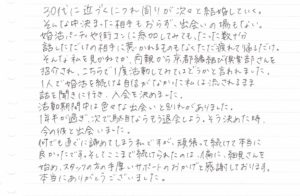 30代に近づくにつれ周りが次々と結婚していく。
そんな中決まった相手もおらず、出会いの場もない。
婚活パーティや街コンに参加してみても、たった数分
話しただけの相手に惹かれるものもなくただ疲れて帰るだけ。
そんな私を見かねてか、両親から京都縁結び倶楽部さんを
紹介され、こちらで1度活動してみてはどうかと言われました。
1人で婚活を続ける自信がなかった私は流されるまま
話を聞きに行き、入会を決めました。
活動期間中は色々な出会いと別れがありました。
1年半が過ぎ、次で駄目ならもう退会しよう。そう決めた時、
今の彼と出会いました。
何でも直ぐに諦めてしまう私ですが、頑張って続けて本当に
良かったです。そしてここまで続けられたのは、偏に、細見さんを
始め、スタッフの方の手厚いサポートのおかげと感謝しております。
本当にありがとうございました。